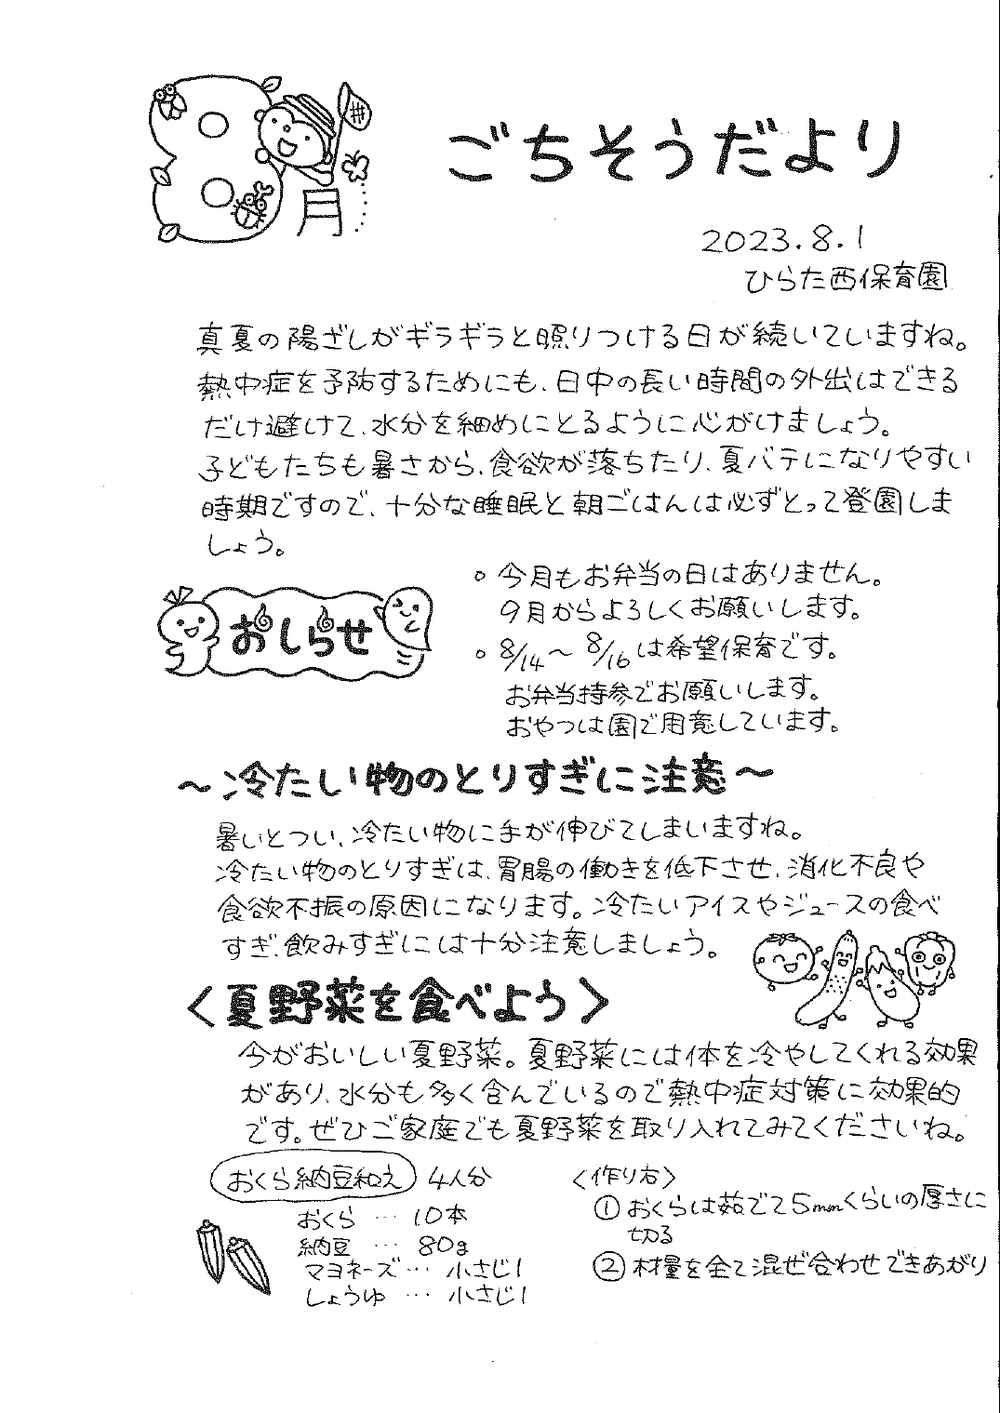 8月
ごちそうだより
2023.8.1
ひらた西保育園
真夏の陽ざしがギラギラと照りつける日が続いていますね。
熱中症を予防するためにも、日中の長い時間の外出はできる
だけ避けて、水分を細めにとるように心がけましょう。
子どもたちも暑さから、食欲が落ちたり、夏バテになりやすい
時期ですので、十分な睡眠と朝ごはんは必ずとって登園しま
しょう。
おしらせ
○今月もお弁当の日はありません。
9月からよろしくお願いします。
○8/14～8/16は希望保育です。
お弁当持参でお願いします。
おやつは園で用意しています。
～冷たい物のとりすぎに注意～
暑いとつい、冷たい物に手が伸びてしまいますね。
冷たい物のとりすぎは、胃腸の働きを低下させ、消化不良や
食欲不振の原因になります。冷たいアイスやジュースの食べ
すぎ、飲みすぎには十分注意しましょう。
＜夏野菜を食べよう＞
今がおいしい夏野菜。夏野菜には体を冷やしてくれる効果
があり、水分も多く含んでいるので熱中症対策に効果的
です。ぜひご家庭でも夏野菜を取り入れてみてくださいね。
おくら納豆和え 4人分
おくら … 10本
納豆 … 80g
マヨネーズ … 小さじ1
しょうゆ … 小さじ1
＜作り方＞
①おくらは茹でて5mmくらいの厚さに
切る
②材量を全て混ぜ合わせできあがり